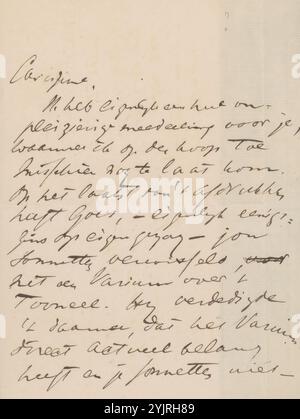 Carissime,
Ik heb eigenlijk een heel on-
pleizierige mededeeling voor je,
waarmee ik op den hoop toe
misschien nog te laat kom.
Op het laatst van 't afdrukken
heeft Goes, - eigenlijk eenigs-
zins op eigen gezag - jou
sonnetten verwisseld,
met een Varium over 't
Tooneel. Hij verdedigde
't daarmee, dat het Varium
direct actueel belang
heeft en je sonnetten niet -
alamy
Image ID: 2YJRH89
www.alamy.com